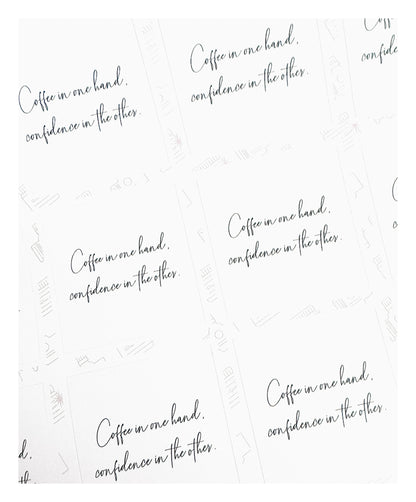 Coffee in one hand,
confidence in the other.
Coffee in one hand,
confidence in the other.
Coffee in one hand,
confidence in the other.
Coffee in one hand,
confidence in the other.
Coffee in one hand,
confidence in the other.
Coffee in one hand,
confidence in the other.